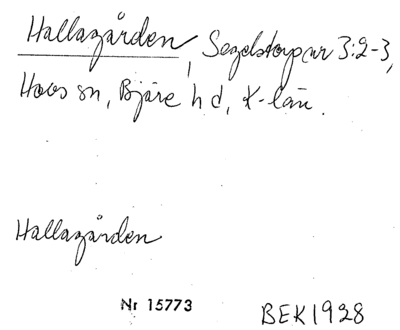 Hallagården, Segelstorp nr 3:2-3,
Hovs sn, Bjäre hd, K-län.
Hallagården
Nr 15773
BEK 1928